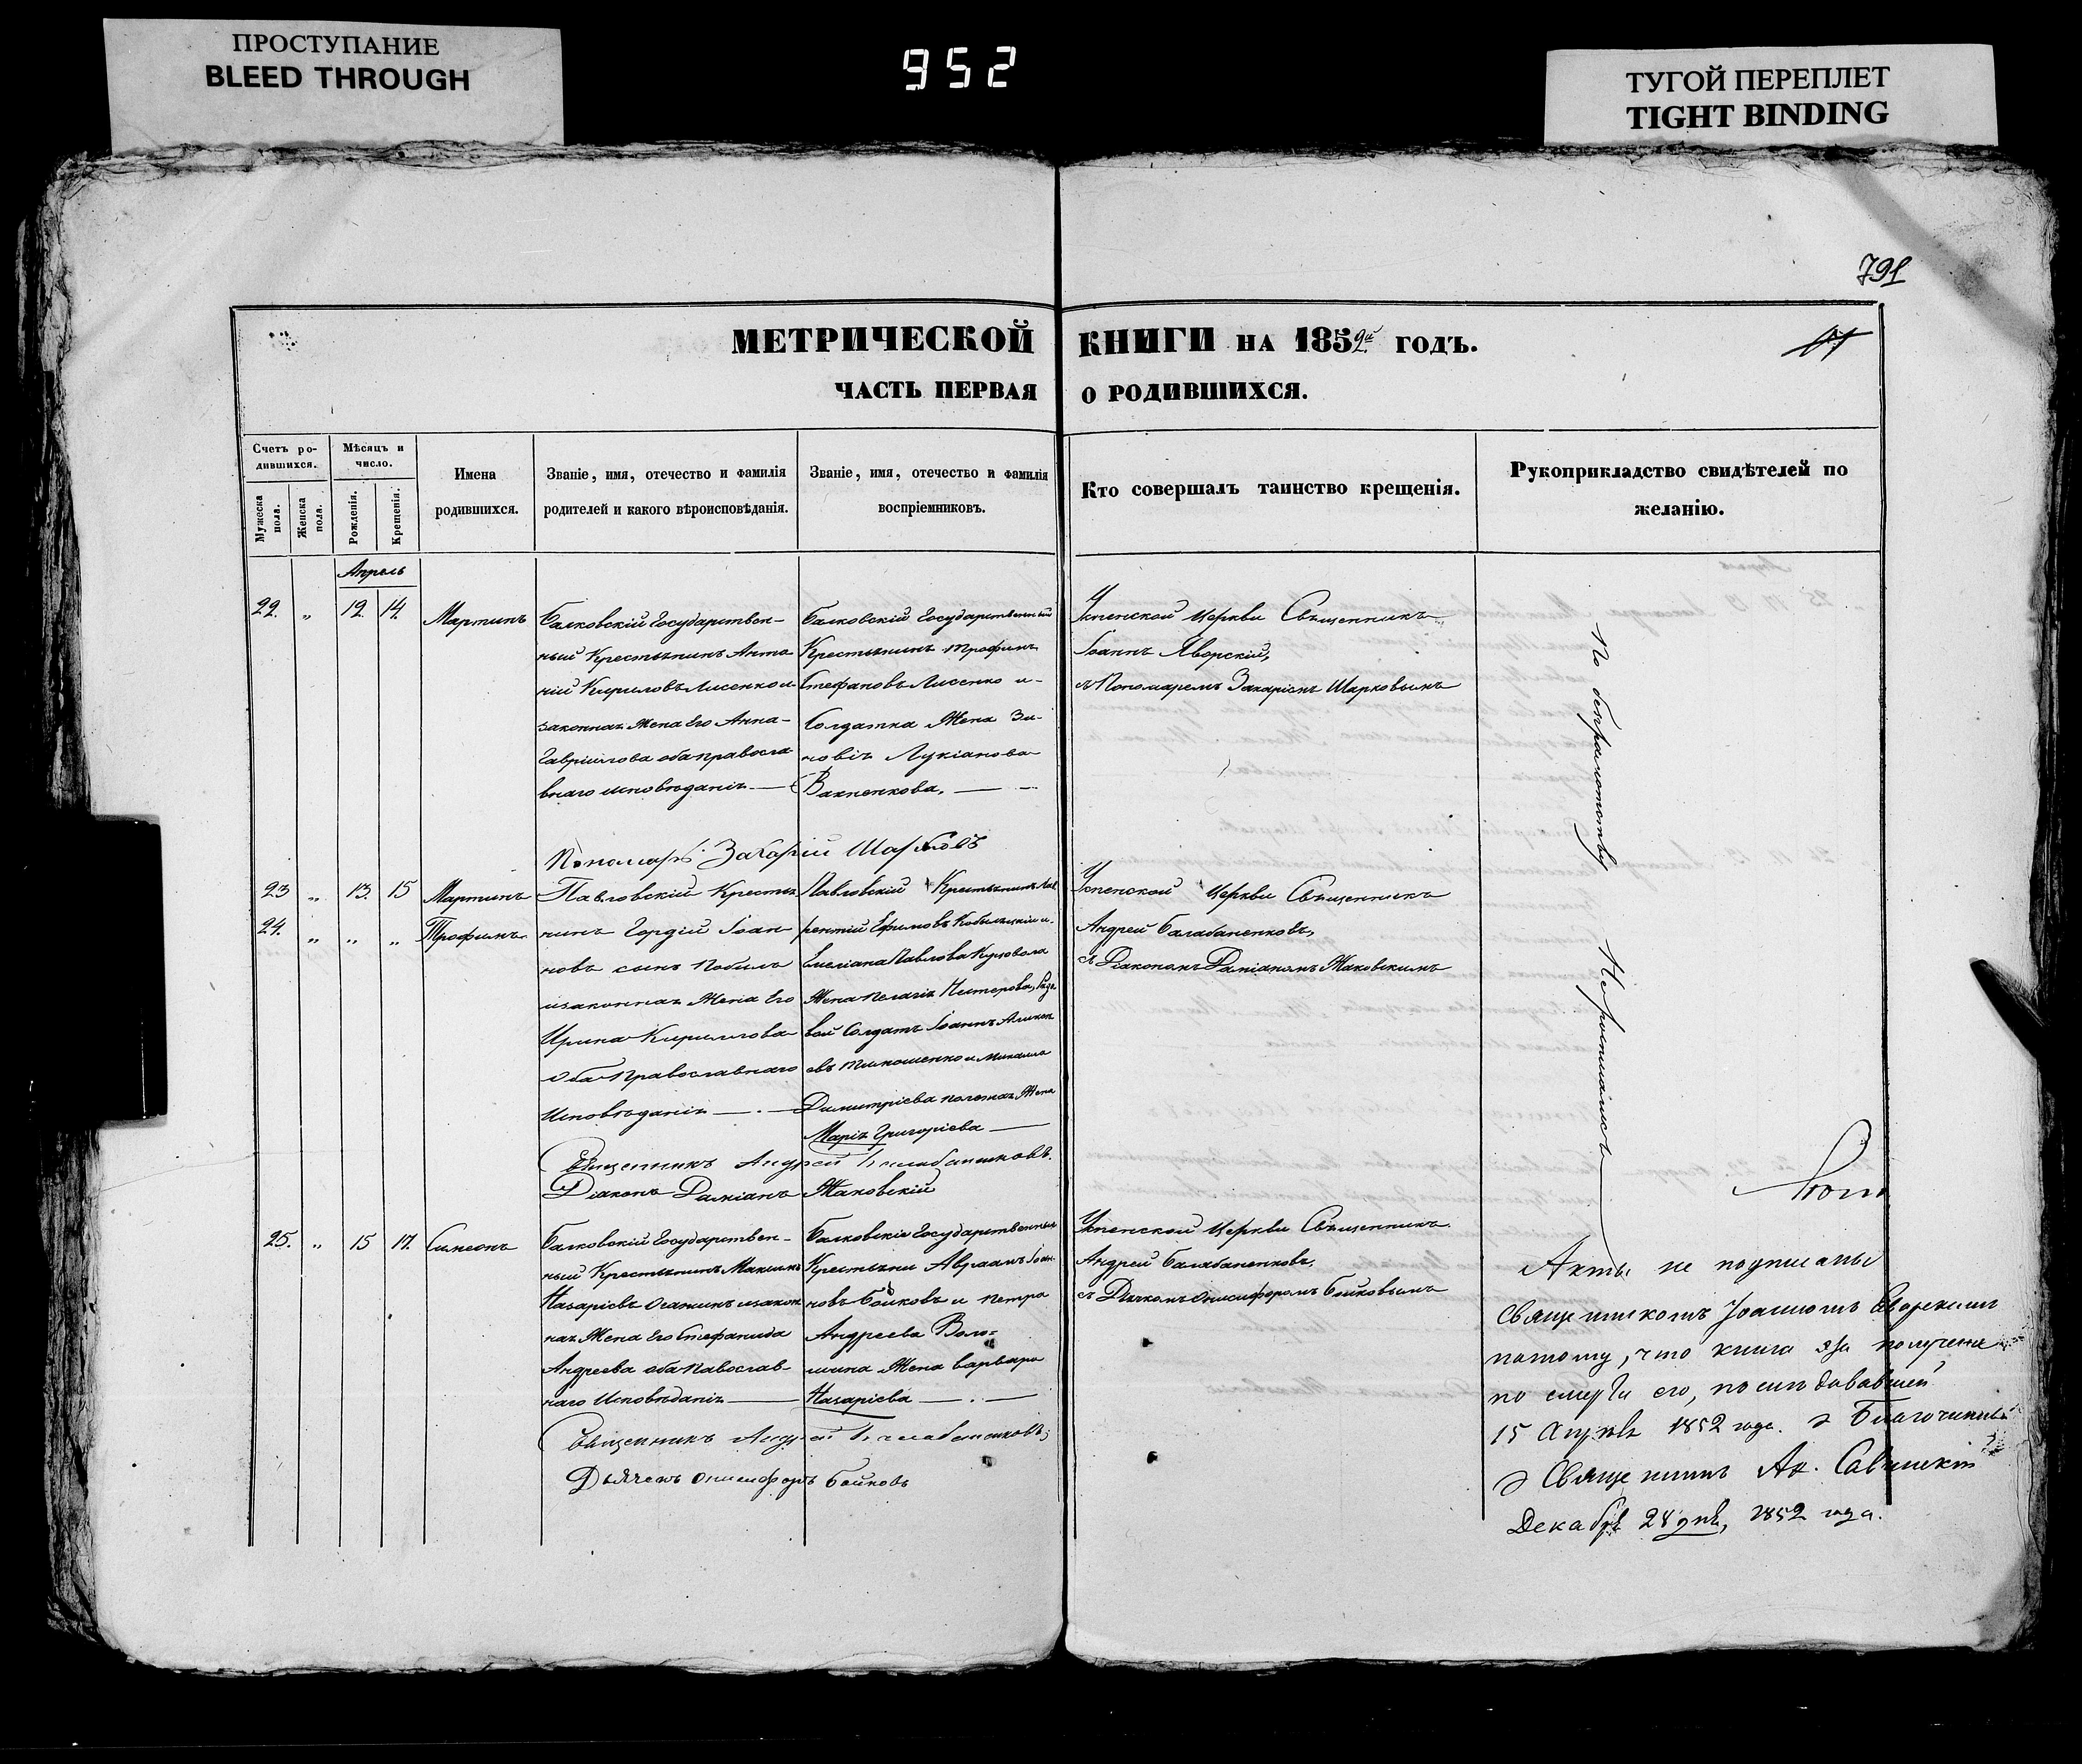 ПРОСТУПАНИЕ
BLEED THROUGH
952
ТУГОЙ ПЕРЕПЛЕТ
TIGHT BINDING
791
МЕТРИЧЕСКОЙ КНИГИ НА 1852й ГОДЪ.
ЧАСТЬ ПЕРВАЯ О РОДИВШИХСЯ.
Счетъ ро-
дившихся.
Мужеска пола.
Женска пола.
Мѣсяцъ и
число.
Рожденія.
Крещенія.
Имена
родившихся.
Званіе, имя, отечество и фамилія
родителей и какого вѣроисповѣданія.
Званіе, имя, отечество и фамилія
воспріемниковъ.
Кто совершалъ таинство крещенія.
Рукоприкладство свидѣтелей по
желанію.
Апрель
22. „ 12. 14. Мартинъ
Балковскій Государствен-
ный Крестьянинъ Анто
ній Кириловъ Лисенко и
законная Жена Его Анна
Гавріилова оба правосла
внаго исповѣданія
Балковскій Государственный
Крестьянинъ Трофимъ
Стефановъ Лисенко и
Солдатка Жена Зи-
новія Лукіанова
Вакненкова,
Успенской Церкви Священникъ
Іоаннъ Яворскій,
съ Пономаремъ Захаріемъ Шарковымъ
Пономарь Захарій Шарковъ
23 „ 13. 15 Мартинъ
24. „ „ „ Трофимъ
Павловскій Крестья
нинъ Гордій Іоан
новъ сынъ
изаконная Жена Его
Ирина Кирилова
Оба Православнаго
Исповѣданія
Павловскій Крестьянинъ Лав
рентій Ефимовъ и
Павлова
Жена Пелагія Нестерова, Рядо
вой Солдатъ Іоаннъ
Димитріева Жена
Марія Григоріева
Успенской Церкви Священникъ
Андрей Балабаненковъ,
съ Діакономъ Даміаномъ Жаковскимъ
Священникъ Андрей Балабаненковъ.
Діаконъ Даміанъ Жаковскій
25. „ 15 17. Симеонъ
Балковскій Государствен-
ный Крестьянинъ Максимъ
Назаріевъ изакон
ная Жена Его Стефанида
Андреева оба Павослав
наго Исповѣданія
Балковскіе Государственныя
Крестьяни Авраамъ Іоан-
новъ Бойковъ и Петра
Андреева Воло-
шина Жена Варвара
Назаріева
Успенской Церкви Священникъ
Андрей Балабаненковъ,
съ Дьячкомъ Онисифоромъ Бойковымъ
Священникъ Андрей Балабаненковъ;
Дьячекъ Онисифоръ Бойковъ
По безграмотству Неримались
Акты не подписаны
Священникомъ Іоанномъ Яворскимъ
потому, что книга эта получена
по смерти его, послѣдовавшей
15 Апрѣля 1852 года. Благочинный
Священникъ Ак. Савинскій
Декабря 28 дня, 1852 года.